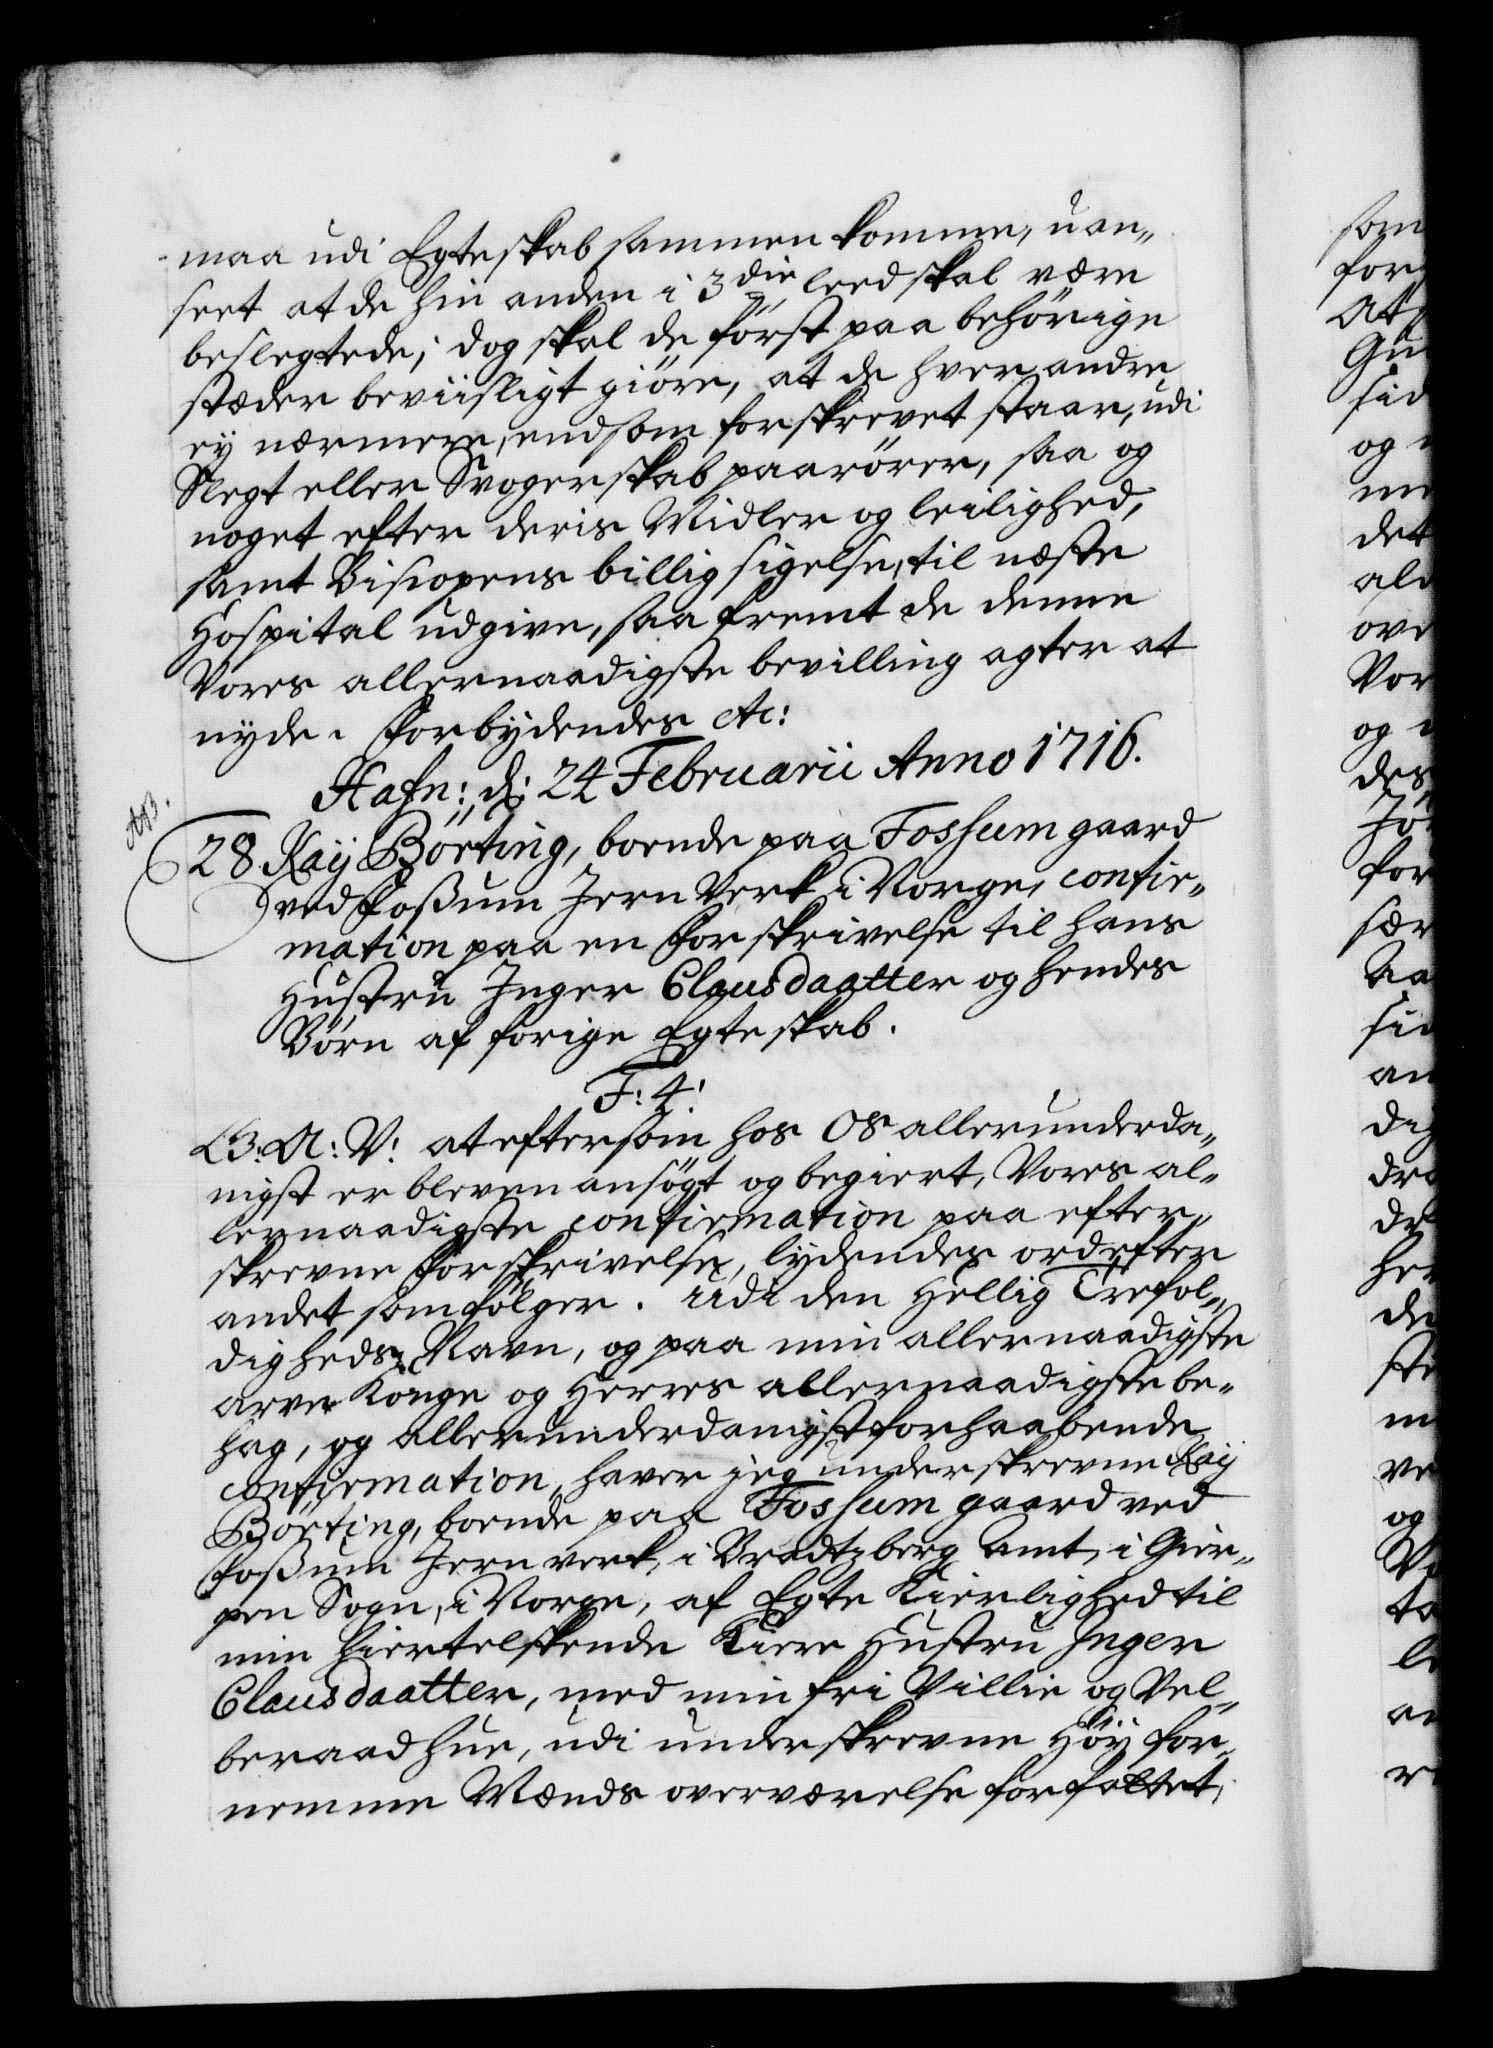 maa udi Egteskab sammen komme, uan„
seet at de hin anden i 3die leed skal være
beslegtede; dog skal de först paa behörige
stæder beviisligt giöre, at de hver andre
ey nærmere, end som forskrevet staar, udi
Slegt eller Svogerskab paarörer, saa og
noget efter deris Midler og leilighed,
samt Biscopens billig sigelse, til næste
Hospital udgive, saa fremt de denne
Vores allernaadigste bevilling agter at
nyde. Forbydendes etc:
Hafn: d: 24 Februarii Anno 1716.
28 Kaÿ Börting, boende paa Fossum gaard
ved Foßum Jern Verk i Norge, confir„
mation paa en Forskrivelse til hans
Hustru Inger Clausdaatter og hendes
Börn af forige Egteskab.
F: 4:
G: A: V: at eftersom hos Os allerunderda„
nigst er bleven ansögt og begiert, Vores al„
lernaadigste confirmation paa efter„
skrevne Forskrivelse, lydendes ord efter
andet som fölger. Udi den Hellig Trefol„
digheds Navn, og paa min allernaadigste
arve Konge og Herres allernaadigste be„
hag, og allerunderdanigst forhaabende
confirmation, haver jeg underskrevne Kaÿ
Börting, boende paa Fossum gaard ved
Foßum Jernverk, i Bradtzberg Amt, i Gier„
pen Sogn, i Norge, af Egte Kierlighed til
min hiertelskende Kiere Hustru Inger
Clausdaatter, med min fri Villie og Vel„
beraad hue, udi underskrevne Höÿ for„
nemme Mænds overværelse forfattet,
som
for
At
Gu
sid
og
me
det
al
ove
Vor
og
des
for
sær
Aa
sid
an
dig
dra
de
her
de
ste
m
ve
og
Vi
ta
le